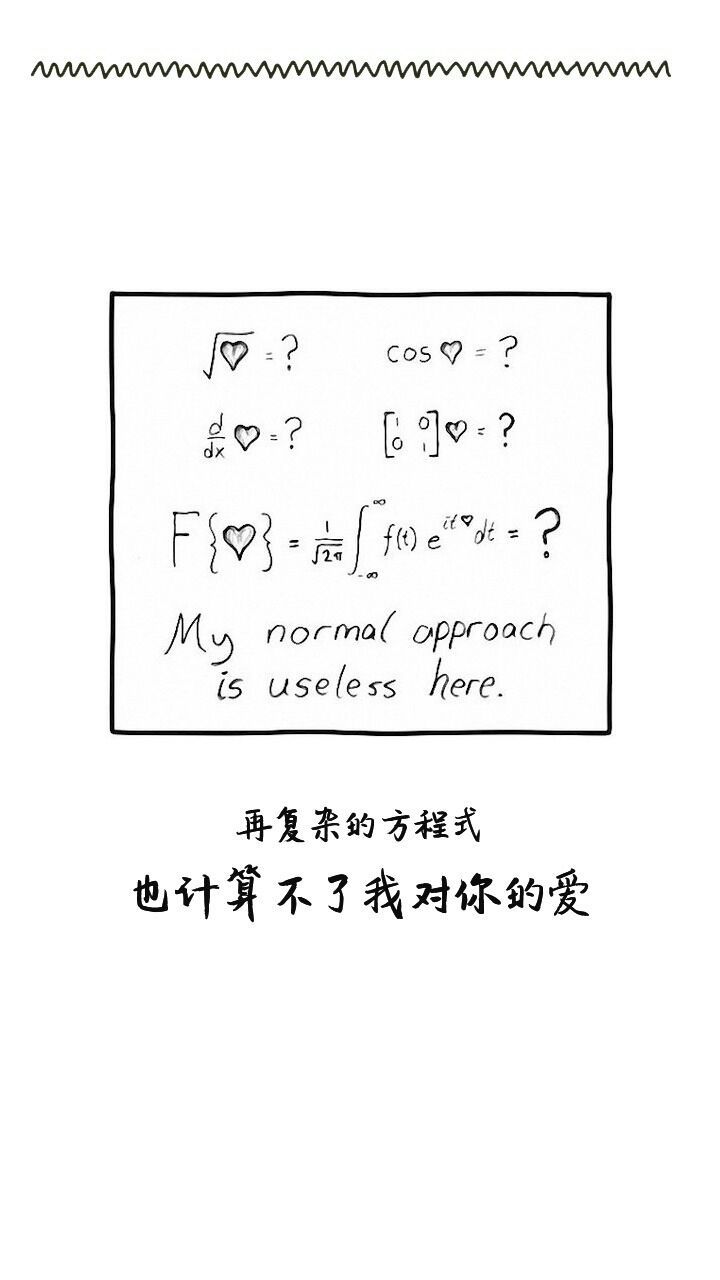 √♥ = ?    cos ♥ = ?
d/dx ♥ = ?    [1 0 0 1] ♥ = ?
F{♥} = 1/√2π ∫_{-∞}^{∞} f(t) e^{it♥} dt = ?
My normal approach
is useless here.
再复杂的方程式
也计算不了我对你的爱